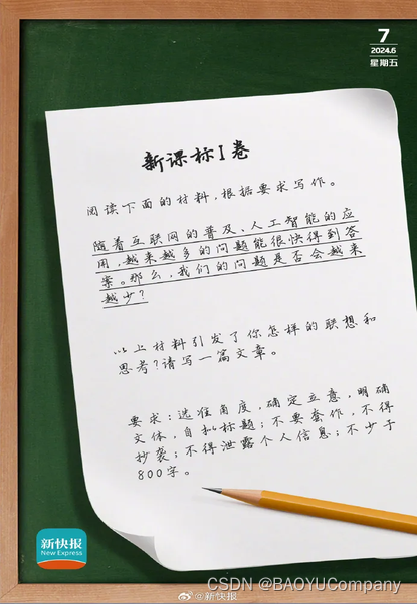 7
2024.6
星期五
新课标I卷
阅读下面的材料，根据要求写作。
随着互联网的普及、人工智能的应
用，越来越多的问题能很快得到答
案。那么，我们的问题是否会越来
越少？
以上材料引发了你怎样的联想和
思考？请写一篇文章。
要求：选准角度，确定立意，明确
文体，自拟标题；不要套作，不得
抄袭；不得泄露个人信息；不少于
800字。
新快报
New Express
@新快报
CSDN @BAOYUCompany